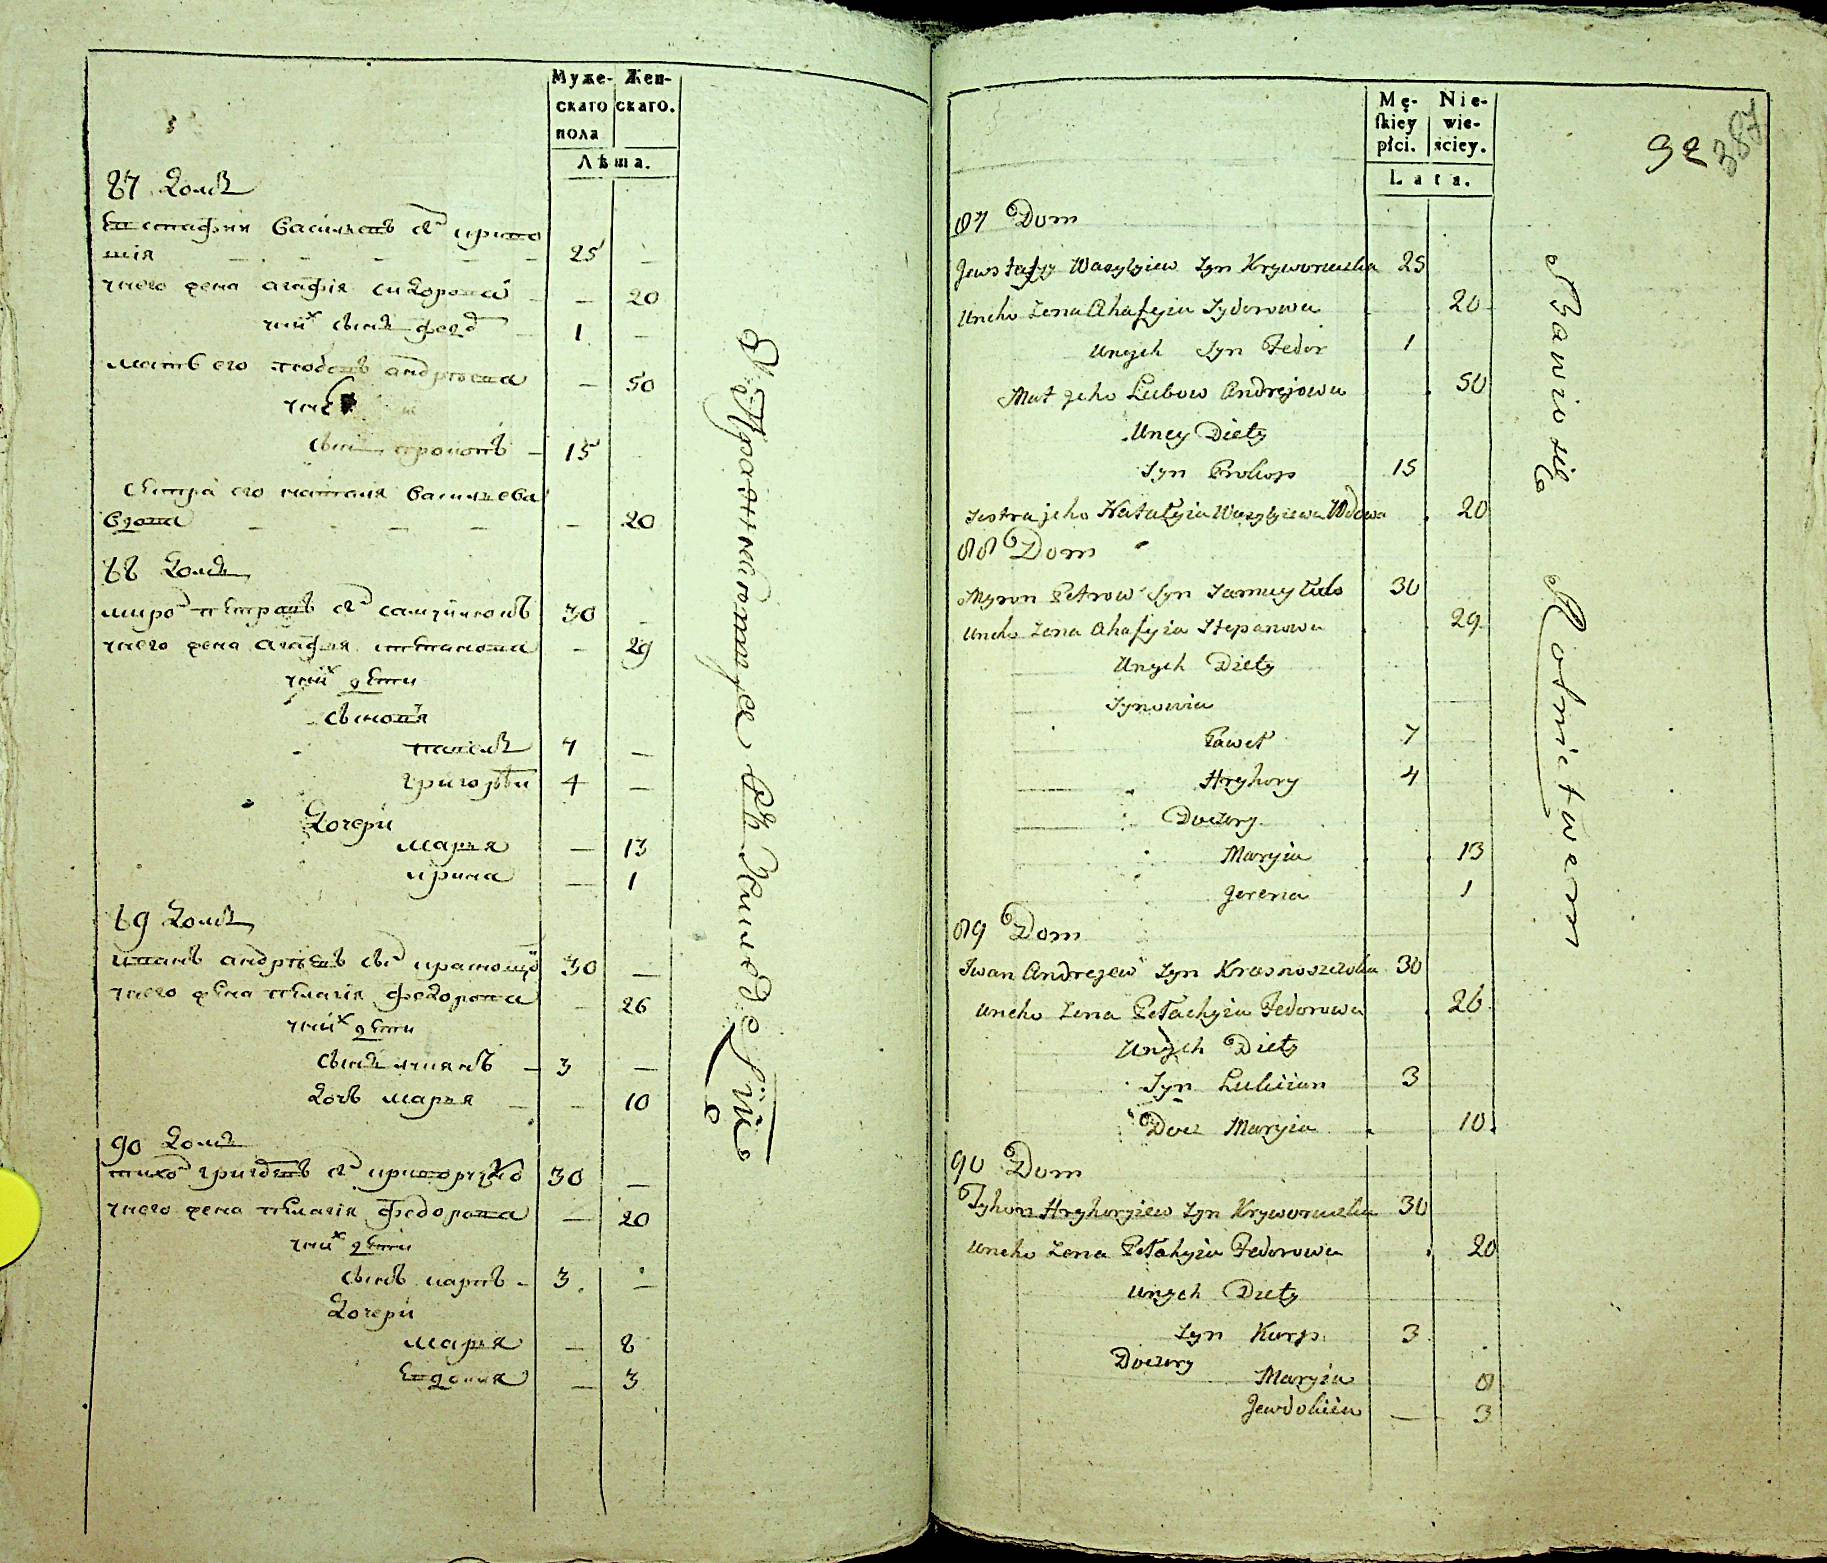 Муже-
скаго
пола
Жен-
скаго.
Лѣта.
87 домъ
Евстафии Васильевъ сы͞н
25
унего жена агафія сидорова
20
уних сынъ федо͞р
1
мать его любовь андрѣева
50
сынъ прокопъ
15
сестра его наталя васильева
вдова
20
88 домъ
миро͞н петровъ сы͞н самуйлювъ
30
унего жена агафия степанова
29
уних дети
сыновя
павелъ 7
григорѣи 4
дочери
марья 13
ирина 1
89 домъ
иванъ андрѣевъ сы͞н
30
унего жена пелагія федорова
26
уних дети
сынъ лукиянъ 3
дочь марья 10
90 домъ
тихо͞н сы͞н
30
унего жена пелагія федорова
20
уних дети
сынъ карпъ 3
дочери
марья 8
евдокия 3
Упражняются въ земледелии
Mę-
ſkiey
płci.
Nie-
wie-
ściey.
Lata.
92
387
87 Dom
Jewstafyy Wasylyiew Syn Kryworuczka 25
Uneho Zena Ahafyia Sydorowa 20
Unych Syn Fedor 1
Mat jeho Lubow Andrejowa 50
Uney Diety
Syn Prokop 15
Sestra jeho Natalyia Wasylyiewa Wdowa 20
88 Dom
Myron Petrow Syn 30
Uneho Zena Ahafyia Stepanowa 29
Unych Diety
Synowia
Paweł 7
Hryhory 4
Doczery
Maryia 13
Jerena 1
89 Dom
Iwan Andrejew Syn Krasnoszczoka 30
Uneho Zena Pełachyia Fedorowa 26
Unych Diety
Syn Lukiian 3
Docz Maryia 10
90 Dom
Tyhon Hryhoryiew Syn Kryworuczka 30
Uneho Zena Pełahyia Fedorowa 20
Unych Diety
Syn Karp 3
Doczery
Maryia 8
Jewdokiia 3
Bawio się Rolnictwem